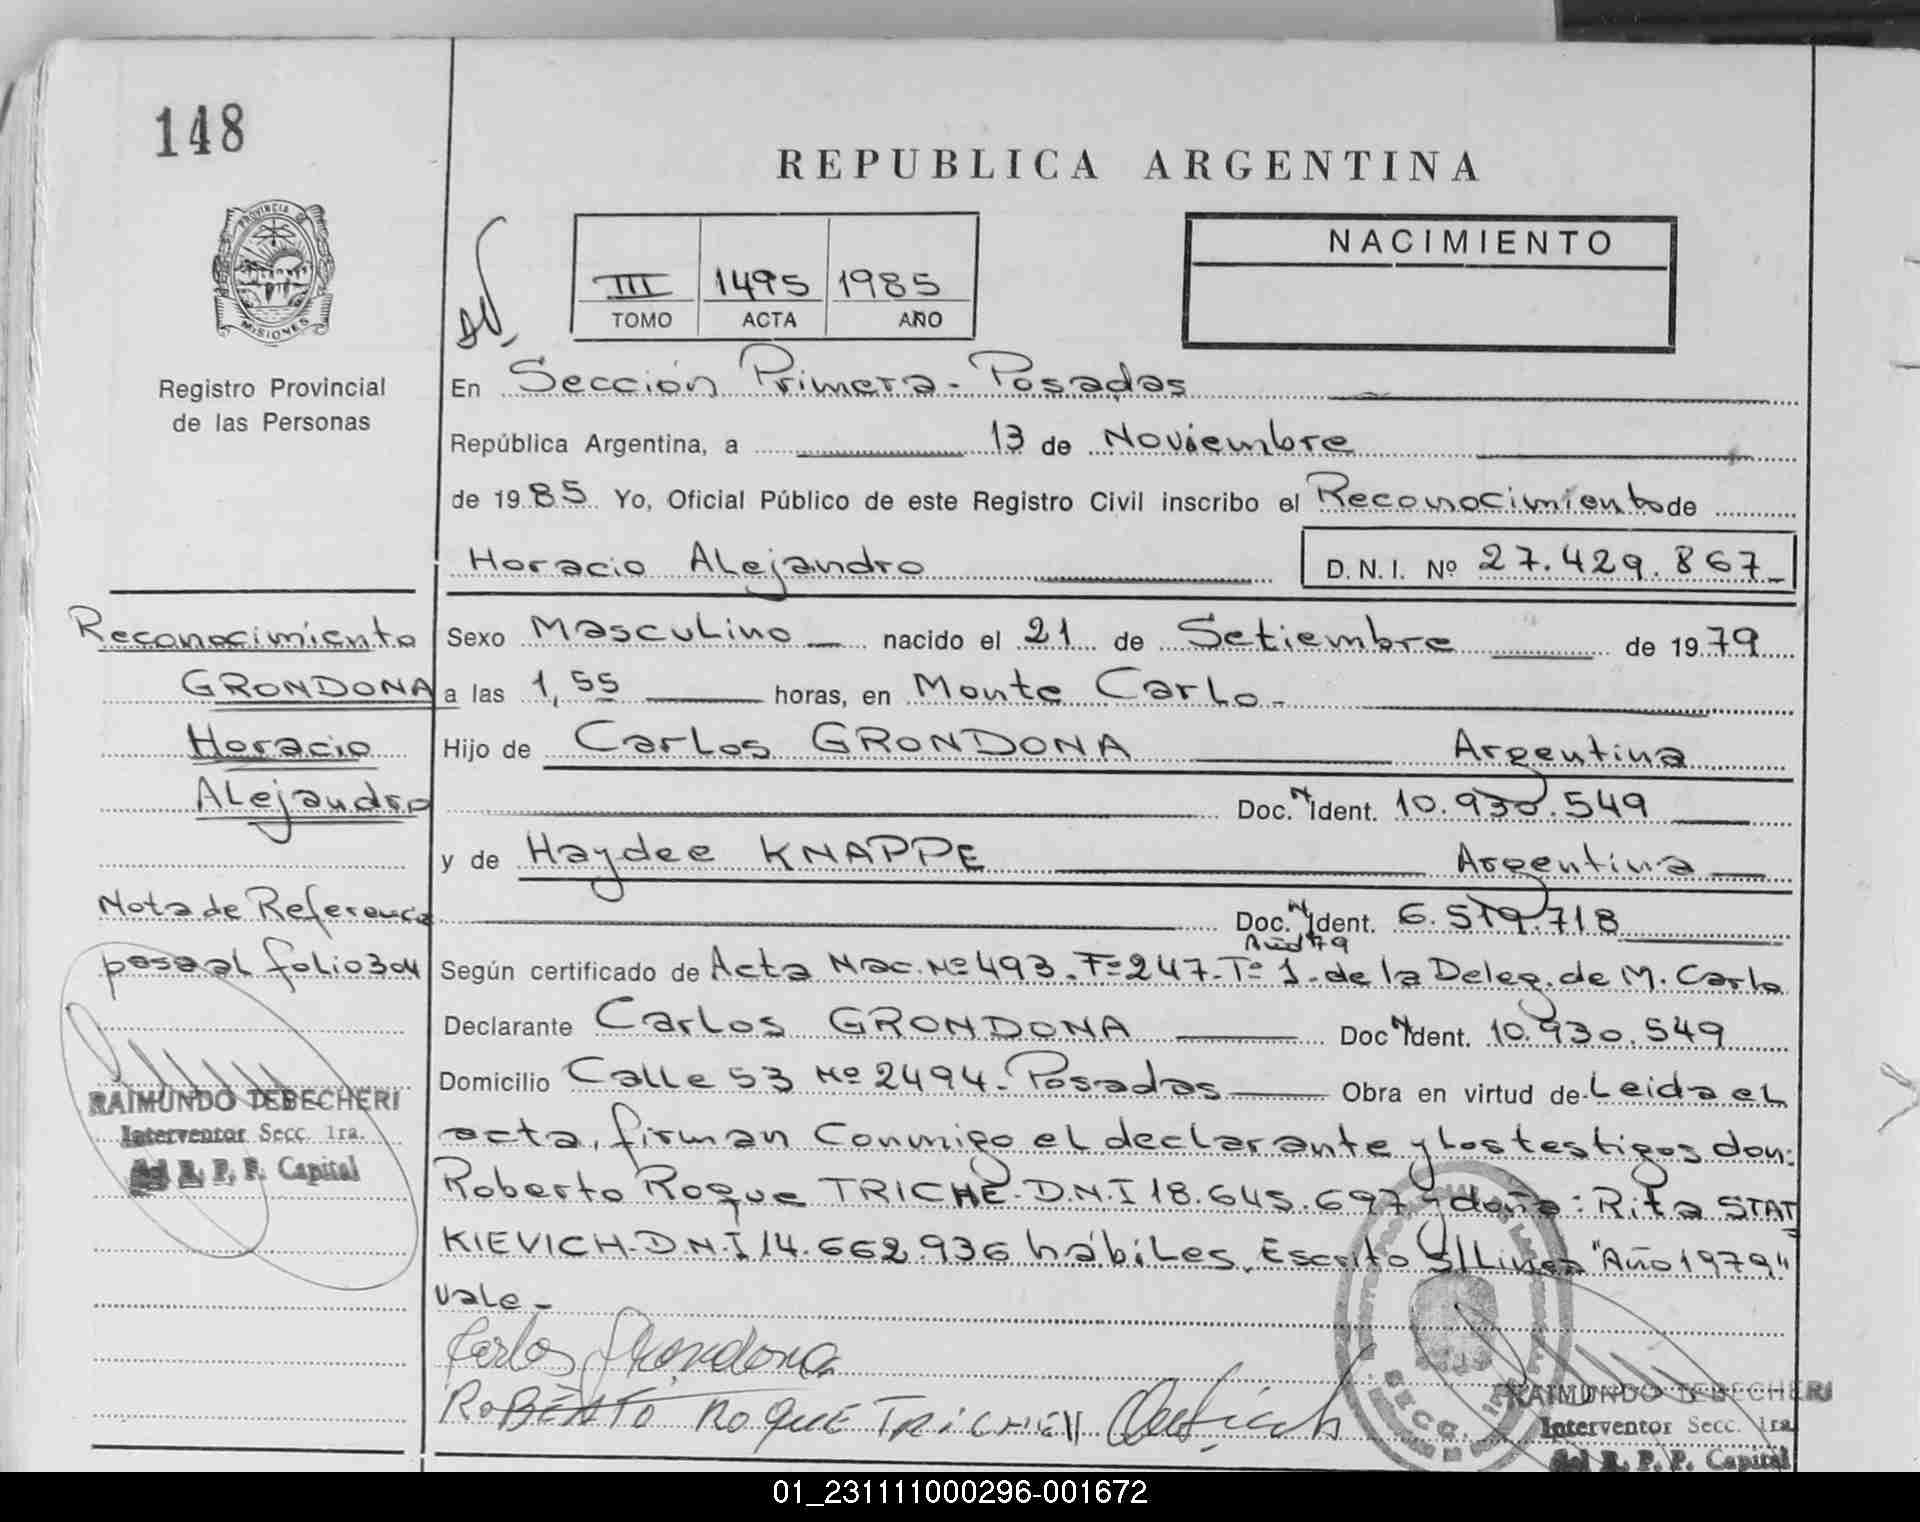 148
REPUBLICA ARGENTINA
PROVINCIA DE
MISIONES
Registro Provincial
de las Personas
III 1495 1985
TOMO ACTA AÑO
NACIMIENTO
En Sección Primera - Posadas
República Argentina, a 13 de Noviembre
de 1985. Yo, Oficial Público de este Registro Civil inscribo el Reconocimiento de
Horacio Alejandro D.N.I. Nº 27.429.867
Reconocimiento
GRONDONA
Horacio
Alejandro
Nota de Referencia
pasa al folio 304
RAIMUNDO TEBECHERI
Interventor Secc. 1ra.
del R. P. P. Capital
Sexo Masculino nacido el 21 de Setiembre de 1979
a las 1,55 horas, en Monte Carlo -
Hijo de Carlos GRONDONA Argentina
Doc. N Ident. 10.930.549
y de Haydee KNAPPE Argentina
Doc. N Ident. 6.519.718
Año 79
Según certificado de Acta Nac. Nº 493. Fº 247. Tº 1. de la Deleg. de M. Carlo
Declarante Carlos GRONDONA Doc N Ident. 10.930.549
Domicilio Calle 53 Nº 2494 - Posadas Obra en virtud de - Leida el
acta, firman conmigo el declarante y los testigos don:
Roberto Roque TRICHE - D.N.I 18.645.697 y doña: Rita STAT
KIEVICH - D.N.I 14.662.936 hábiles. Escrito s/Linea "Año 1979"
vale -
Carlos Grondona
ROBERTO ROQUE TRICHE
RAIMUNDO TEBECHERI
Interventor Secc. 1ra.
del R. P. P. Capital
01_231111000296-001672